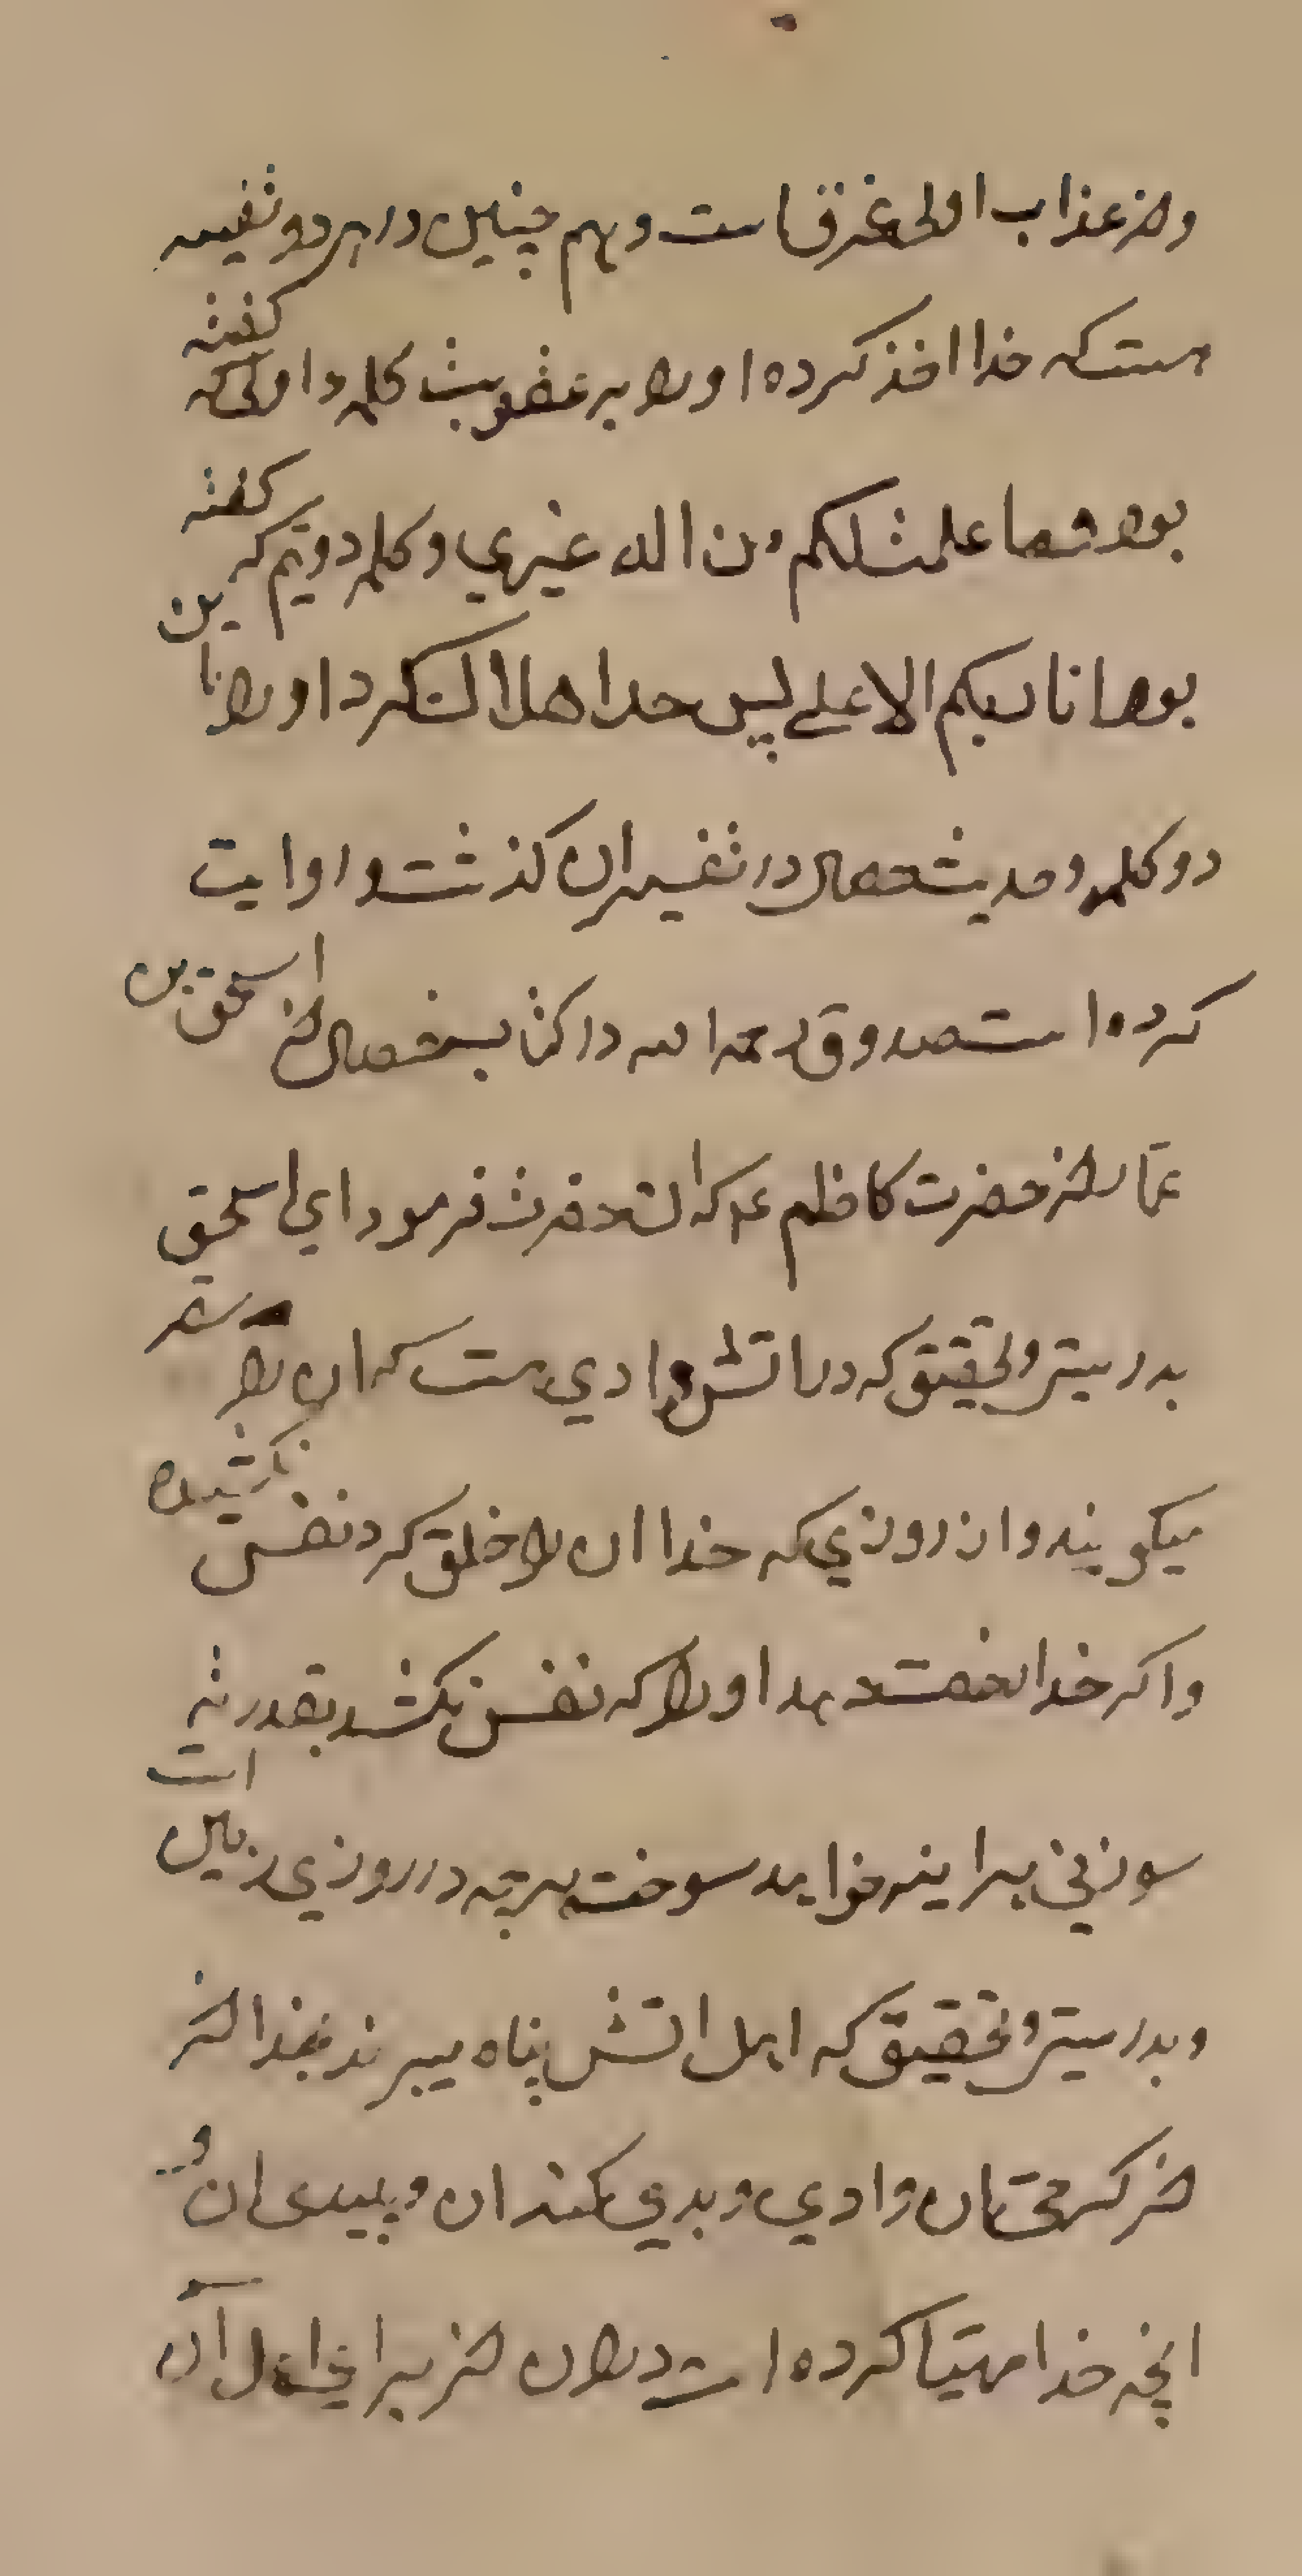 واز عذاب اولی غرق است و هم چنین در هر دو تفسیر
هست که خدا اخذ کرده او را بر عقوبت کلمه اولی که گفته
بود ما علمت لکم من اله غیری و کلمه دویم که گفته
بود انا ربکم الاعلی پس خدا هلاک کرد او را باین
دو کلمه و حدیث خصال در تفسیر ان کذشت و روایت
کرده است صدوق رحمه الله در کتاب خصال از اسحق بن
عمار از حضرت کاظم ع که ان حضرت فرمود ای اسحق
بدرستی و تحقیق که در اتش وادی هست که ان را سقر
میکویند و از روزی که خدا ان را خلق کرد نفس نکشیده
واکر خدا رخصت دهد او را که نفس بکشد بقدر ته
سوزنی هراینه خواهد سوخت هرچه در روی زمین است
و بدرستی و تحقیق که اهل اتش پناه میبرند بخدا از
از کرمی ان وادی و بدی کند ان و پلیدی ان و
انچه خدا مهیا کرده است در ان از برای اهل آن